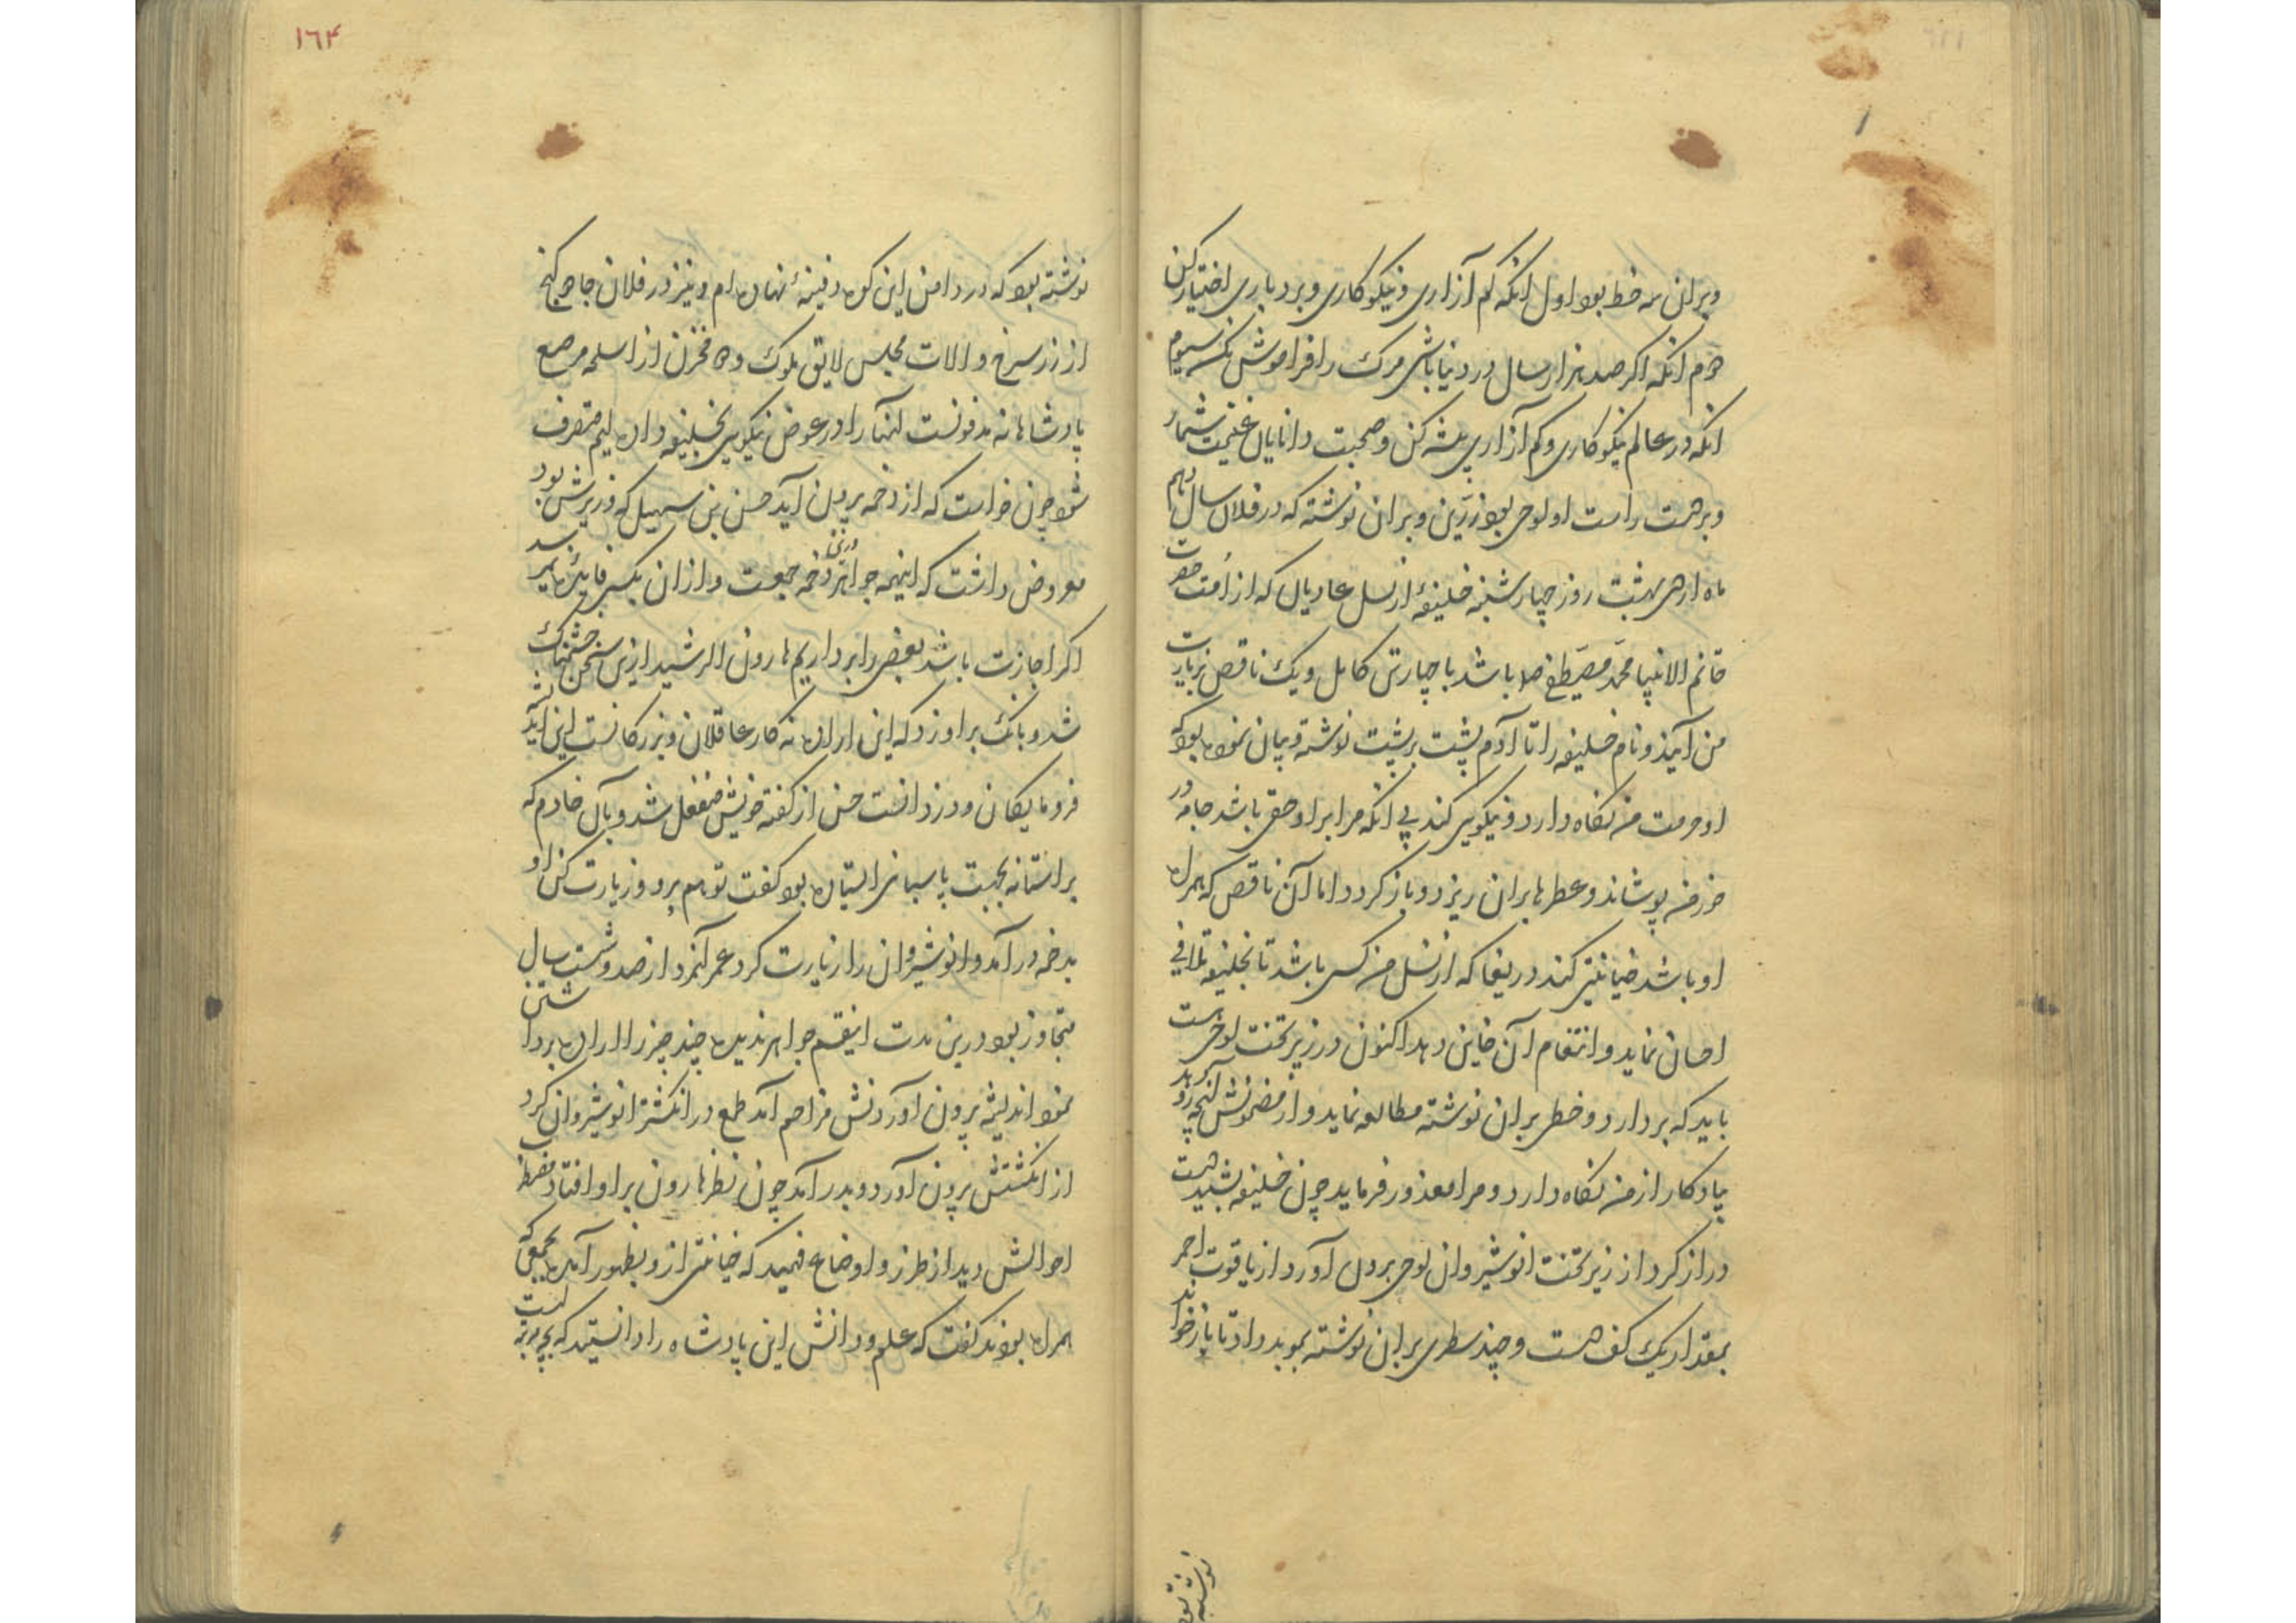 وبران سه خط بود اول انکه کم آزاری و نیکو کاری و بردباری اختیار کن
دوم انکه اکر صد هزار سال در دنیا باشی مرک را فراموش نکنی سیوم
انکه در عالم نیکو کاری و کم آزاری پیشه کن و صحبت دانایان غنیمت شمار
وبر دست راست او لوحی بود زرّین و بران نوشته که در فلان سال دهم
ماه اردی بهشت روز چهارشنبه خلیفۀ از نسل عادیان که از اُمت حضرت
خاتم الانبیا محمّد مصطفی صلا باشد با چهار تن کامل و یک ناقص بزیارت
من آیند و نام خلیفه را تا آدم پشت بر پشت نوشته و بیان نموده بود که
او حرمت من نکاه دارد و نیکویی کند بی انکه مرا بر او حقی باشد جامه در
خور من پوشاند و عطرها بران ریزد و باز کردد اما آن ناقص که همراه
او باشد خیانتی کند دریغا که از نسل من کسی باشد تا بخلیفه تلافی
احسان نماید و انتقام آن خاین دهد اکنون در زیر تخت لوحیست
باید که بردارد و خطی بران نوشته مطالعه نماید و از مضمونش آنچه رو دهد
یادکار از من نکاه دارد و مرا معذور فرماید چون خلیفه بشنید دست
دراز کرد از زیر تخت انوشیروان لوحی برون آورد از یاقوت احمر
بمقدار یک کف دست و چند سطری بران نوشته بموبد داد تا باز خواند
نوشته بود
۱٦۴
نوشته بود که در دامن این کوه دفینۀ نهاده ام و نیز در فلان جا ده کنج
از زر سرخ و الات مجلس لایق ملوک و ده مخزن از اسلحه مرصع
پادشاهانه مدفونست آنها را در عوض نیکویی بخلیفه داده ایم متصرف
شود چون خواست که از دخمه برون آید حسن بن سهیل که وزیرش بود
معروض داشت که اینهمه جواهر درین دخمه جمعست و از ان بکسی فایدۀ نمیرسد
اکر اجازت باشد بعضی را برداریم هارون الرشید ازین سخن خشمناک
شد و بانک بر او زد که این اراده نه کار عاقلان و بزرکانست این اندیشه
فرومایکان و دزدانست حسن از کفته خویش منفعل شد و بآن خادم که
بر استانه بجهت پاسبانی ایستاده بود کفت تو هم برو و زیارت کن او
بدخمه در آمد و انوشیروان را زیارت کرد عمر آنمرد از صد و شست سال
متجاوز بود درین مدت اینقسم جواهر ندیده چند چیز را اراده برداشتن
نمود اندیشه برون آوردنش مزاحم آمد طمع در انکشتر انوشیروان کرد
از انکشتش برون آورد و بدر آمد چون نظر هارون بر او افتاد مضطرب
احوالش دید از طرز و اوضاع فهمید که خیانتی ازو بظهور آمده بجمعی که
همراه بودند کفت که علم و دانش این پادشاه را دانستید که بچه مرتبه است